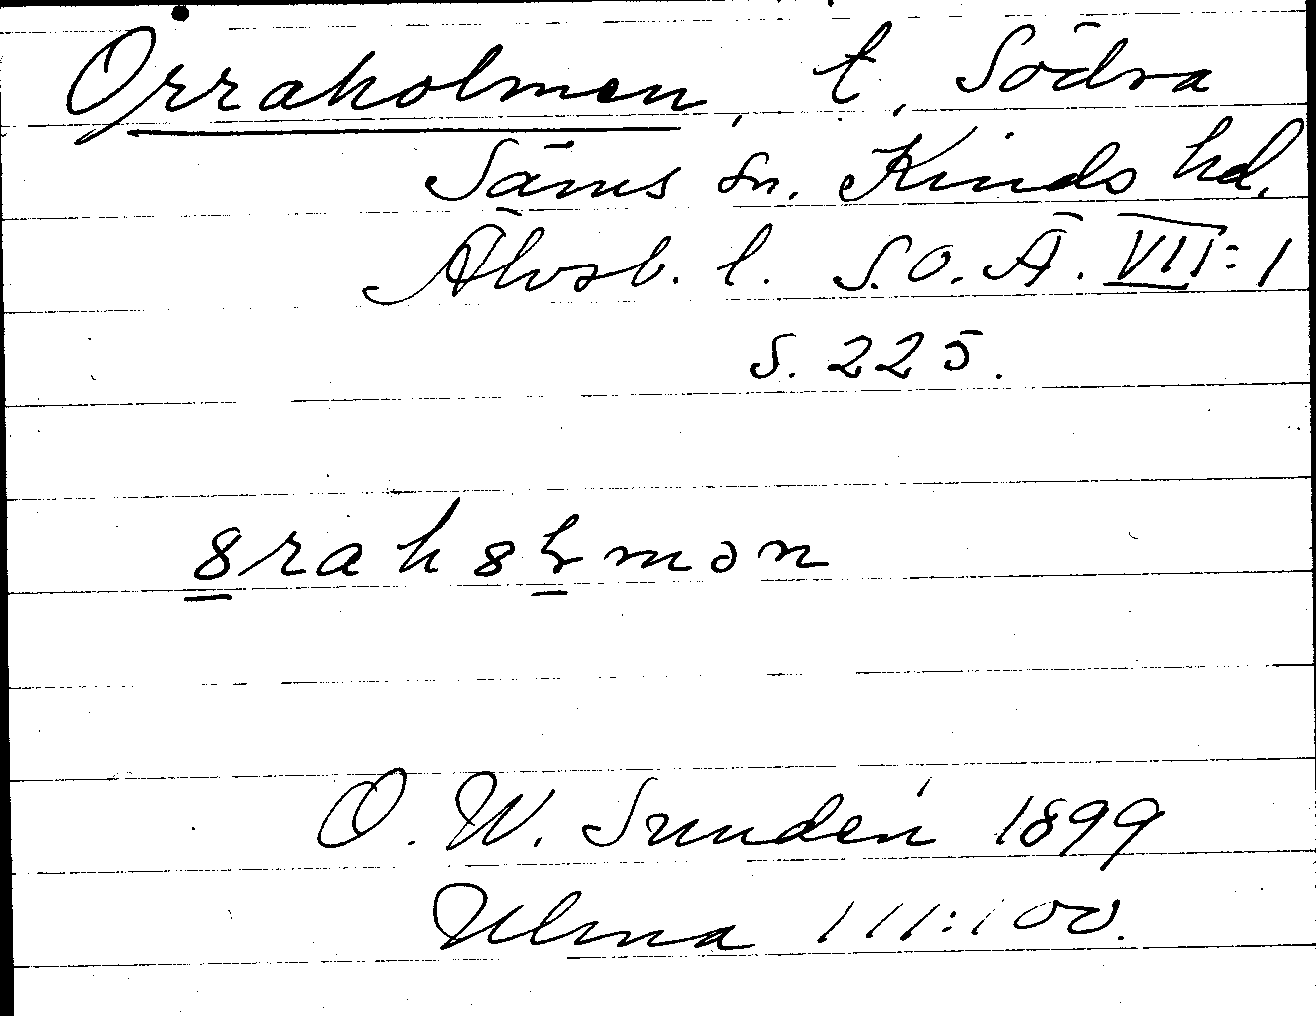 Orraholmen, t, Södra
Säms sn. Kinds hd.
Älvsb. l. S.O.Ä. VII:1
S. 225.
8rah8ɽmən
O. W. Sundén 1899
Ulma 111:100.